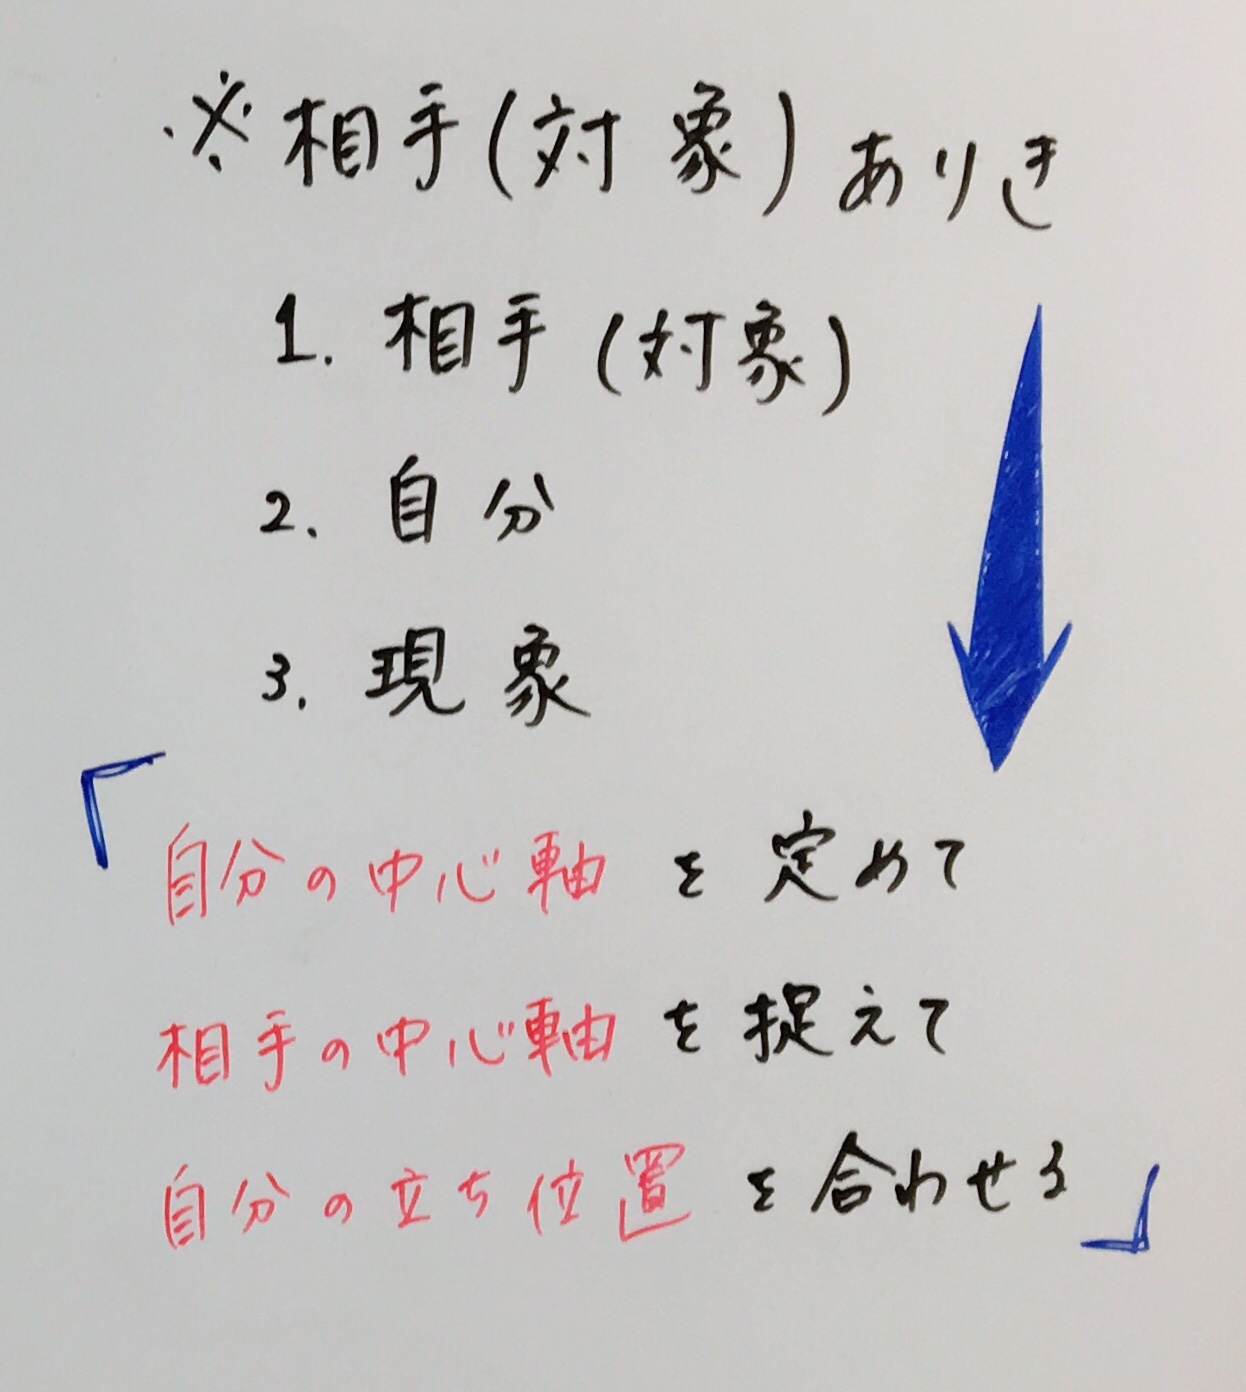 ※相手(対象)ありき
1. 相手(対象)
2. 自分
3. 現象
「自分の中心軸を定めて
相手の中心軸を捉えて
自分の立ち位置を合わせる」